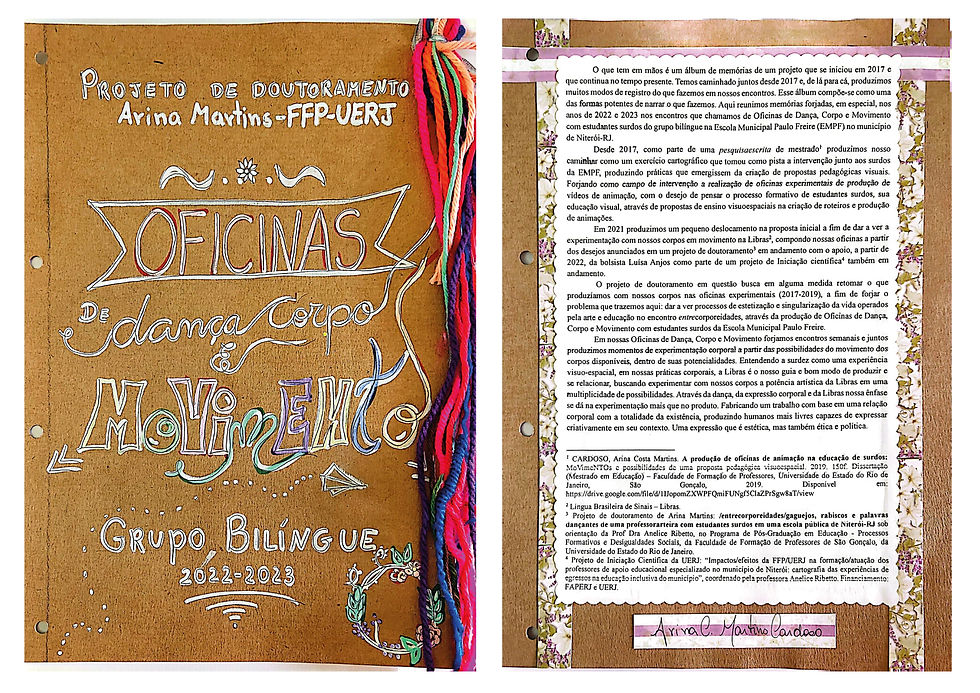 PROJETO DE DOUTORAMENTO
Arina Martins-FFP-UERJ
OFICINAS
DE dança corpo
é
MOViMENTO
GRUPO BILÍNGUE
2022-2023
O que tem em mãos é um álbum de memórias de um projeto que se iniciou em 2017 e
que continua no tempo presente. Temos caminhado juntos desde 2017 e, de lá para cá, produzimos
muitos modos de registro do que fazemos em nossos encontros. Esse álbum compõe-se como uma
das formas potentes de narrar o que fazemos. Aqui reunimos memórias forjadas, em especial, nos
anos de 2022 e 2023 nos encontros que chamamos de Oficinas de Dança, Corpo e Movimento
com estudantes surdos do grupo bilíngue na Escola Municipal Paulo Freire (EMPF) no município
de Niterói-RJ.
Desde 2017, como parte de uma pesquisaescrita de mestrado¹ produzimos nosso
caminhar como um exercício cartográfico que tomou como pista a intervenção junto aos surdos
da EMPF, produzindo práticas que emergissem da criação de propostas pedagógicas visuais.
Forjando como campo de intervenção a realização de oficinas experimentais de produção de
vídeos de animação, com o desejo de pensar o processo formativo de estudantes surdos, sua
educação visual, através de propostas de ensino visuoespaciais na criação de roteiros e produção
de animações.
Em 2021 produzimos um pequeno deslocamento na proposta inicial a fim de dar a ver a
experimentação com nossos corpos em movimento na Libras², compondo nossas oficinas a partir
dos desejos anunciados em um projeto de doutoramento³ em andamento com o apoio, a partir de
2022, da bolsista Luísa Anjos como parte de um projeto de Iniciação científica⁴ também em
andamento.
O projeto de doutoramento em questão busca em alguma medida retomar o que
produzíamos com nossos corpos nas oficinas experimentais (2017-2019), a fim de forjar o
problema que trazemos aqui: dar a ver processos de estetização e singularização da vida operados
pela arte e educação no encontro entrecorporeidades, através da produção de Oficinas de Dança,
Corpo e Movimento com estudantes surdos da Escola Municipal Paulo Freire.
Em nossas Oficinas de Dança, Corpo e Movimento forjamos encontros semanais e juntos
produzimos momentos de experimentação corporal a partir das possibilidades do movimento dos
corpos disponíveis, dentro de suas potencialidades. Entendendo a surdez como uma experiência
visuo-espacial, em nossas práticas corporais, a Libras é o nosso guia e bom modo de produzir e
se relacionar, buscando experimentar com nossos corpos a potência artística da Libras em uma
multiplicidade de possibilidades. Através da dança, da expressão corporal e da Libras nossa ênfase
se dá na experimentação mais que no produto. Fabricando um trabalho com base em uma relação
corporal com a totalidade da existência, produzindo humanos mais livres capazes de expressar
criativamente em seu contexto. Uma expressão que é estética, mas também ética e política.
¹ CARDOSO, Arina Costa Martins. A produção de oficinas de animação na educação de surdos:
MoVimeNTOs e possibilidades de uma proposta pedagógica visuoespacial. 2019. 150f. Dissertação
(Mestrado em Educação) – Faculdade de Formação de Professores, Universidade do Estado do Rio de
Janeiro, São Gonçalo, 2019. Disponível em:
https://drive.google.com/file/d/1IJopomZXWPFQmiFUNgf5ClaZPrSgw8aT/view
² Língua Brasileira de Sinais – Libras.
³ Projeto de doutoramento de Arina Martins: /entrecorporeidades/gaguejos, rabiscos e palavras
dançantes de uma professorarteira com estudantes surdos em uma escola pública de Niterói-RJ sob
orientação da Prof Dra Anelice Ribetto, no Programa de Pós-Graduação em Educação - Processos
Formativos e Desigualdades Sociais, da Faculdade de Formação de Professores de São Gonçalo, da
Universidade do Estado do Rio de Janeiro.
⁴ Projeto de Iniciação Científica da UERJ: “Impactos/efeitos da FFP/UERJ na formação/atuação dos
professores de apoio educacional especializado no município de Niterói: cartografia das experiências de
egressos na educação inclusiva do município”, coordenado pela professora Anelice Ribetto. Financiamento:
FAPERJ e UERJ.
Arina C. Martins Cardoso